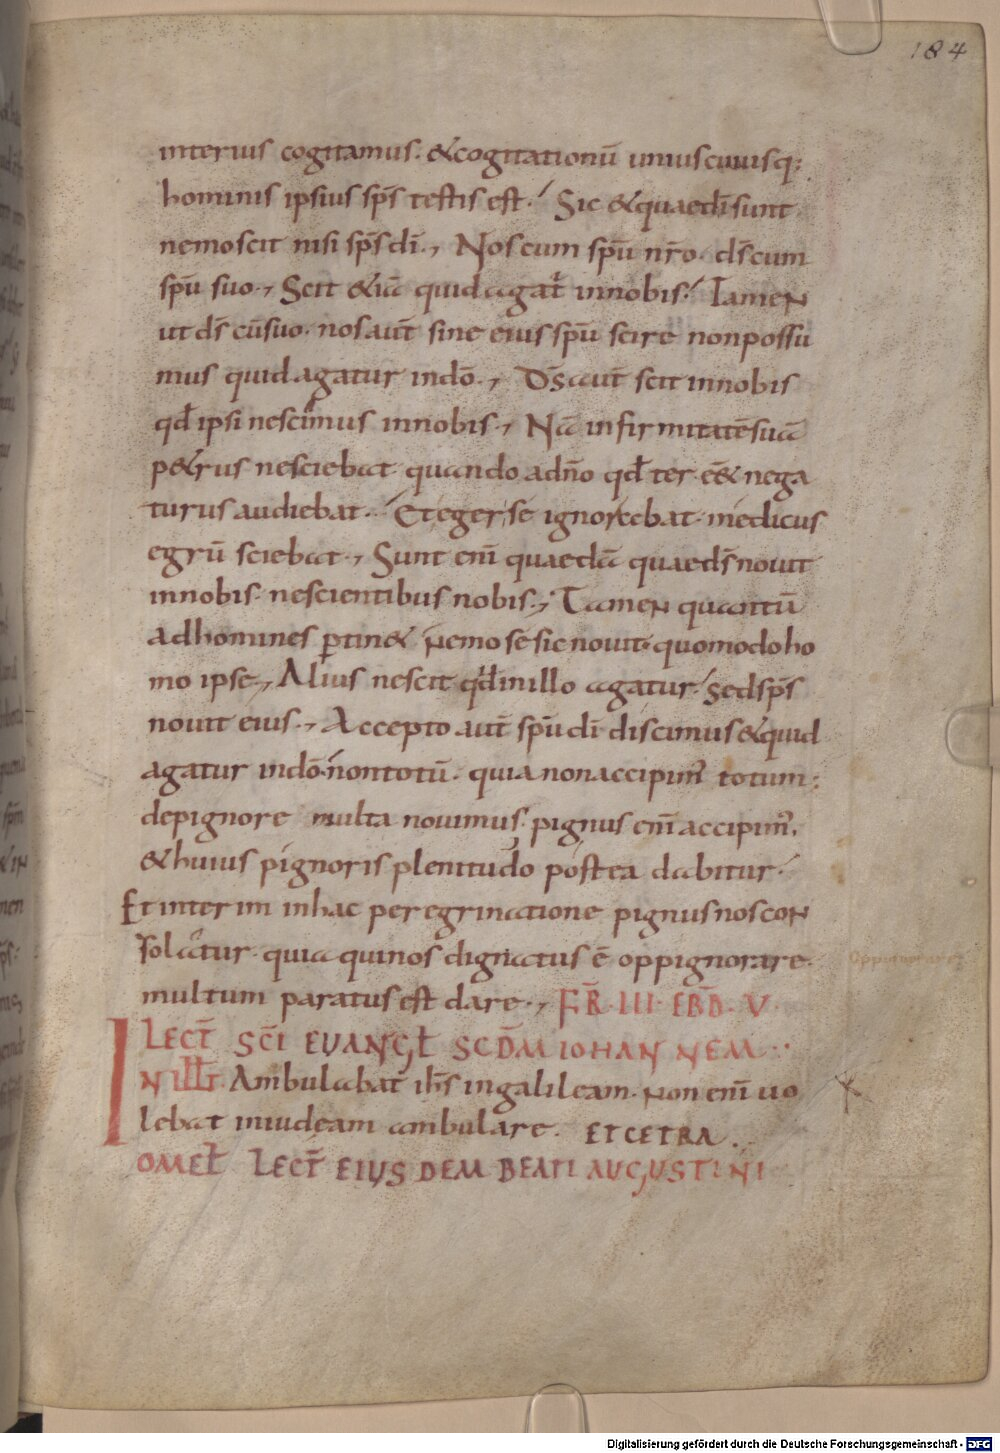 184
interius cogitamus. & cogitationū uniuscuiusq;
hominis ipsius sp̄s testis est. Sic & quae dī sunt
nemo scit nisi sp̄s dī., Nos cum spū nr̄o. ds̄ cum
spū suo., Scit &iā quid agat̄ in nobis. TameN
ut ds̄ cū suo. nos aut̄ sine eius spū scire non possu
mus quid agatur in dō., Ds̄ aut̄ scit in nobis
qđ ipsi nescimus in nobis., Nā infirmitatē suā
p&rus nesciebat quando a dn̄o qđ ter eē& nega
turus audiebat. Et eger se ignorabat. medicus
egrū sciebat., Sunt eni̅ quaedā quae ds̄ nouit
in nobis. nescientibus nobis., TameN quantū
ad homines ꝑtin& Nemo se sic nouit. quomodo ho
mo ipse., Alius nescit qđ in illo agatur. sed sp̄s
nouit eius., Accepto aut̄ spū dī discimus & quid
agatur in dō. non totū. quia non accipim᾽ totum:
de pignore multa nouimus. pignus eni̅ accipim᾽.
& huius pignoris plenitudo postea dabitur.
Et interim in hac peregrinatione pignus nos coN
solatur. quia qui nos dignatus ē oppignorare.
multum paratus est dare., FR̄ III EBD̄ V.
LECT̄ SC̄I EUANGŁ SCD̄M IOHANNEM
IN ILŁT. Ambulabat ihs̄ in galileam. Non eni̅ uo
lebat in iudeam ambulare. ET CETRA.
OMEŁ LECT̄ EIUSDEM BEATI AUGUSTINI
Digitalisierung gefördert durch die Deutsche Forschungsgemeinschaft - DFG